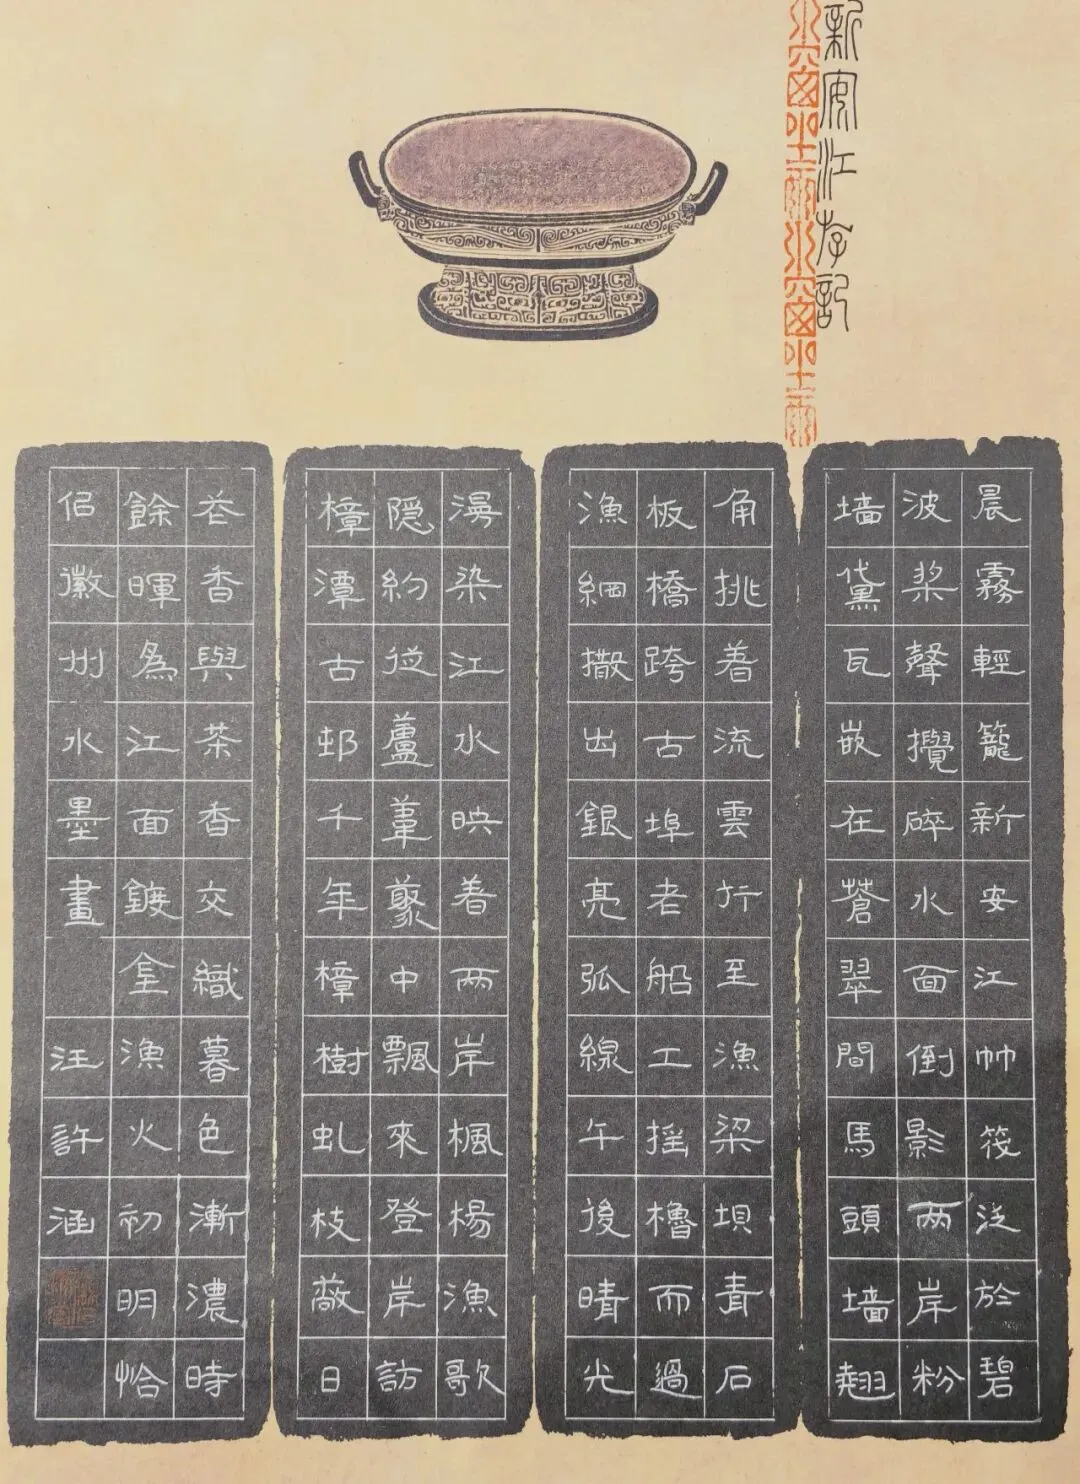 新安江游記
小窗坐雨小窗坐雨
晨霧輕籠新安江竹筏泛於碧
波桨聲攪碎水面倒影兩岸粉
墙黛瓦嵌在蒼翠間馬頭墙翘
角挑着流雲行至漁梁坝青石
板橋跨古埠老船工摇櫓而過
漁網撒出銀亮弧線午後晴光
漫染江水映着兩岸楓楊漁歌
隱約從蘆葦叢中飄來登岸訪
樟潭古邨千年樟樹虬枝蔽日
花香與茶香交織暮色漸濃時
餘暉爲江面鍍金漁火初明恰
佀徽州水墨畫 汪許涵